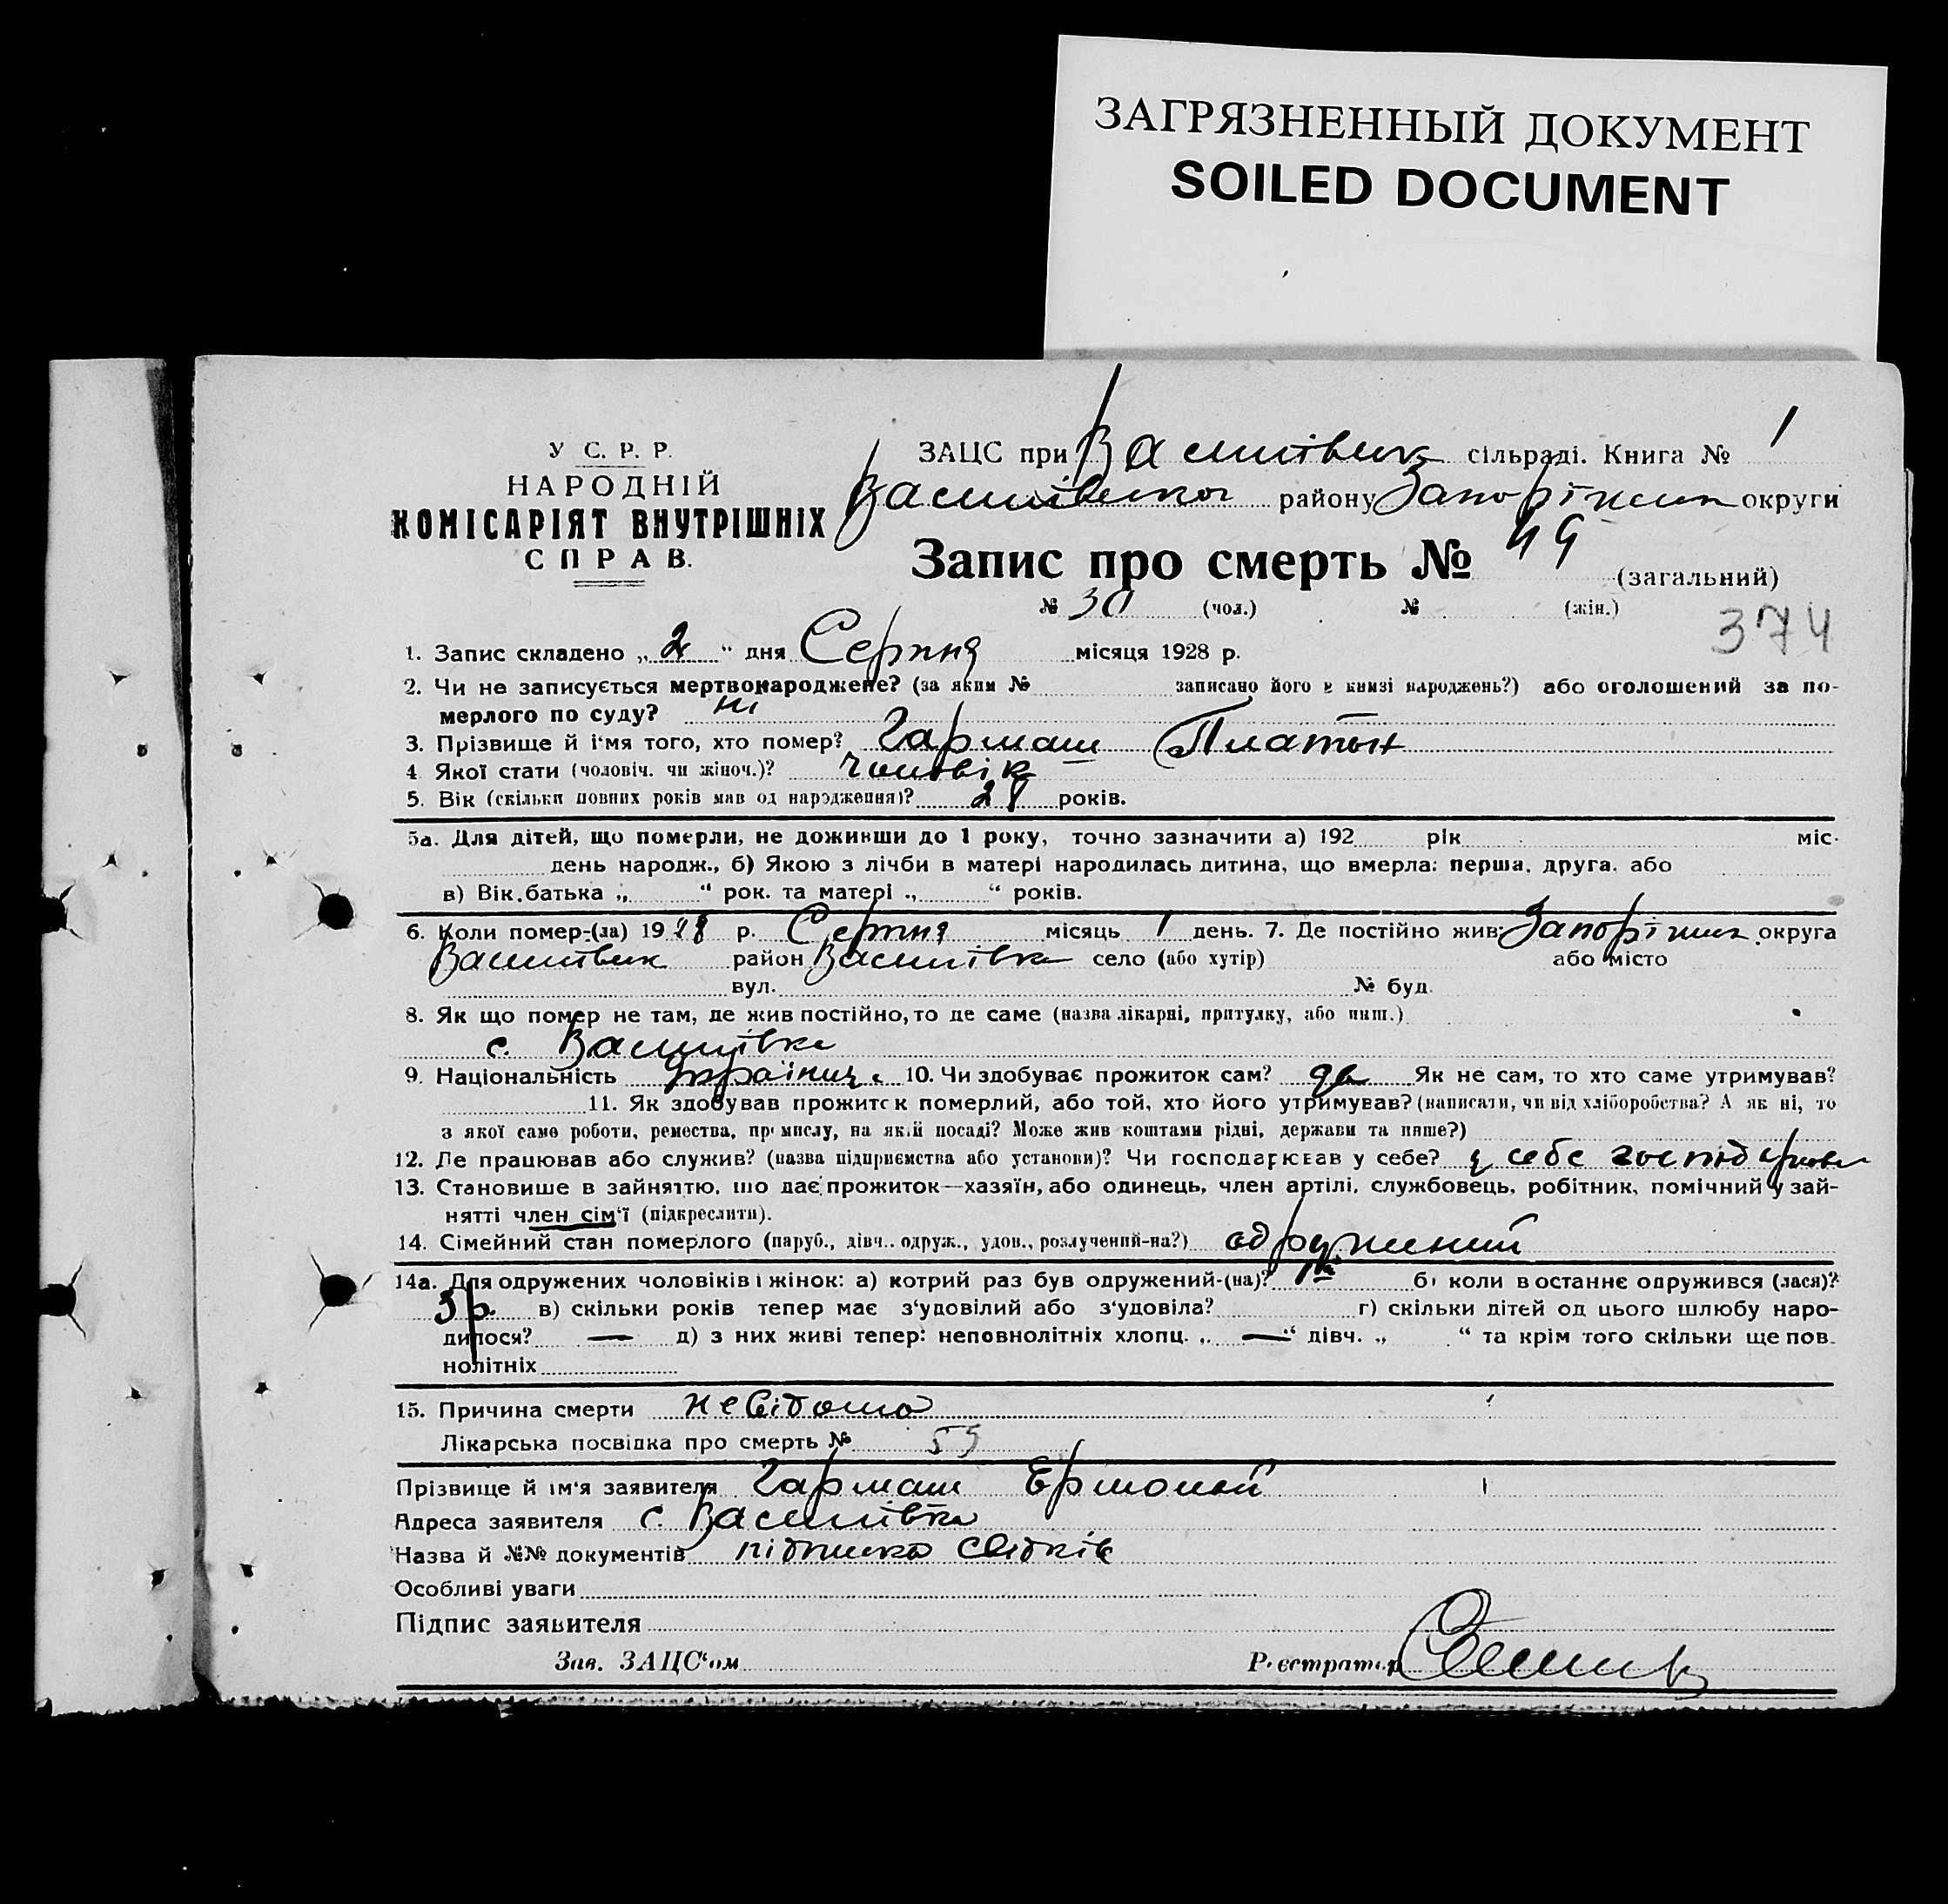 ЗАГРЯЗНЕННЫЙ ДОКУМЕНТ
SOILED DOCUMENT
У С. Р. Р.
НАРОДНІЙ
КОМІСАРІЯТ ВНУТРІШНІХ
СПРАВ.
ЗАЦС при Василівськ сільраді. Книга № 1
Василівського району Запоріжськ округи
Запис про смерть № 49 (загальний)
№ 30 (чол.) № (жін.)
374
1. Запис складено „ 2 “ дня Серпня місяця 1928 р.
2. Чи не записується мертвонароджене? (за яким № записано його в книзі народжень?) або оголошений за по-
мерлого по суду? ні
3. Прізвище й ім'я того, хто помер? Гармаш Платон
4 Якої стати (чоловіч. чи жіноч.)? чоловік
5. Вік (скільки повних років мав од народження)? 28 років.
5а. Для дітей, що померли, не доживши до 1 року, точно зазначити а) 192 рік міс.
день народж., б) Якою з лічби в матері народилась дитина, що вмерла: перша, друга, або
в) Вік батька „ “ рок. та матері „ “ років.
6. Коли помер-(ла) 1928 р. Серпня місяць 1 день. 7. Де постійно жив: Запоріжськ округа
Василівськ район Василівка село (або хутір) або місто
вул. № буд.
8. Як що помер не там, де жив постійно, то де саме (назва лікарні, притулку, або инш.)
с. Василівка
9. Національність Українец 10. Чи здобуває прожиток сам? да Як не сам, то хто саме утримував?
11. Як здобував прожиток померлий, або той, хто його утримував? (написати, чи від хліборобства? А як ні, то
з якої саме роботи, ремества, промислу, на якій посаді? Може жив коштами рідні, держави та инше?)
12. Де працював або служив? (назва підприємства або установи)? Чи господарював у себе? у себе
13. Становище в зайняттю, що дає прожиток—хазяїн, або одинець, член артілі, службовець, робітник, помічний у зай-
нятті член сім'ї (підкреслити).
14. Сімейний стан померлого (паруб., дівч., одруж., удов., розлучений-на?) одружений
14а. Для одружених чоловіків і жінок: а) котрий раз був одружений-(на)? б) коли в останнє одружився (лася)?
3 р. в) скільки років тепер має з'удовілий або з'удовіла? г) скільки дітей од цього шлюбу наро-
дилося? — д) з них живі тепер: неповнолітніх хлопц. „ — “ дівч. „ “ та крім того скільки ще пов-
нолітніх
15. Причина смерти невідома
Лікарська посвідка про смерть № 55
Прізвище й ім'я заявителя Гармаш Ермолай
Адреса заявителя с. Василівка
Назва й №№ документів підписка свідків
Особливі уваги
Підпис заявителя
Зав. ЗАЦС'ом Реєстратор